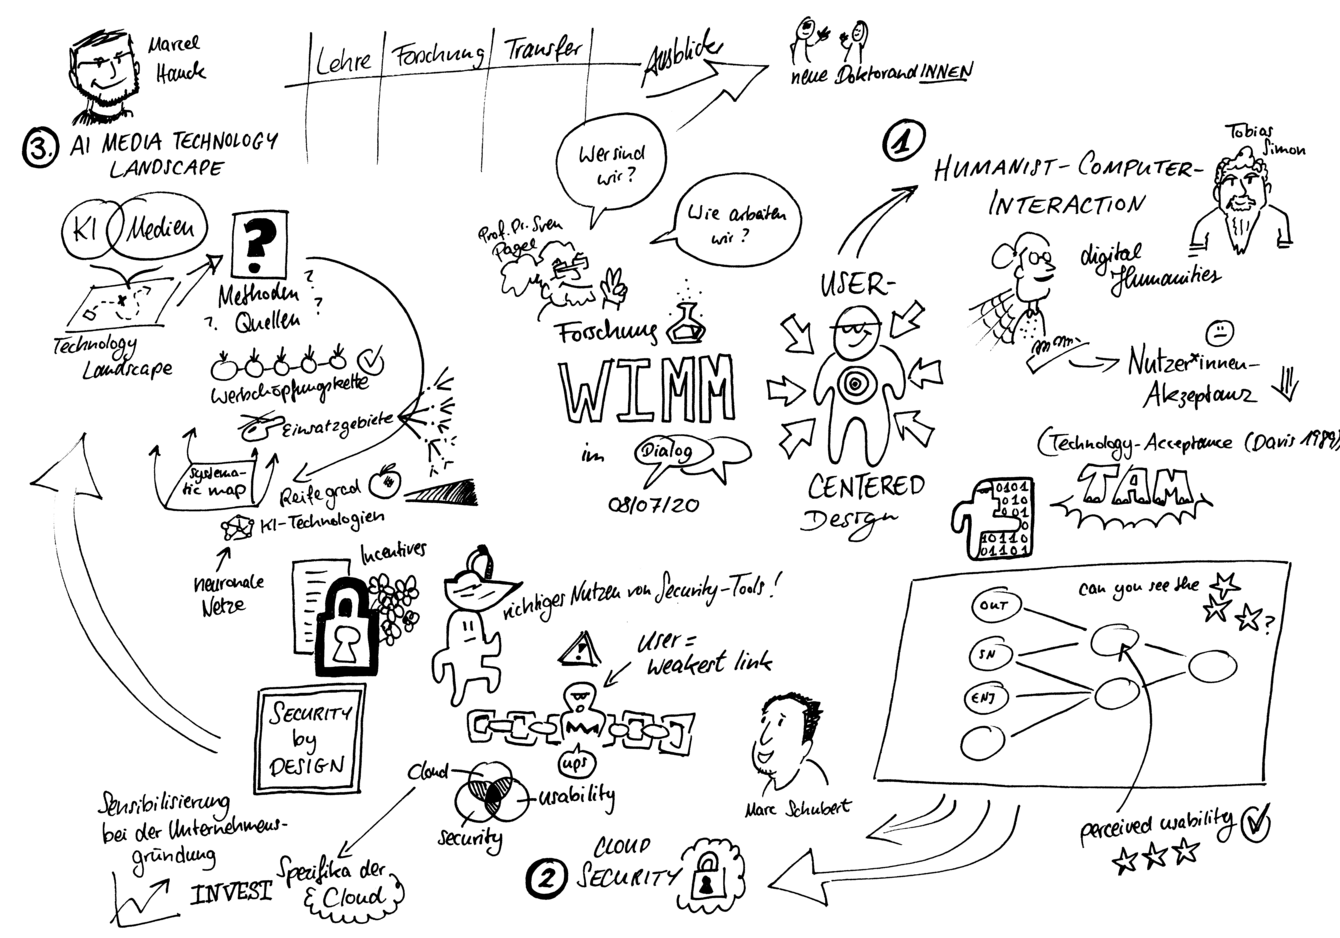 Marcel
Hauck
Lehre
Forschung
Transfer
Ausblick
neue DoktorandINNEN
Wer sind
wir?
Wie arbeiten
wir?
Prof. Dr. Sven
Pagel
Forschung
WIMM
im
Dialog
08/07/20
USER-
CENTERED
Design
1
HUMANIST-COMPUTER-
INTERACTION
Tobias
Simon
digital
Humanities
Nutzer*innen-
Akzeptanz
(Technology-Acceptance (Davis 1989)
TAM
0101
010
001
0
10110
01101
can you see the
?
OUT
SN
ENJ
perceived usability
2
CLOUD
SECURITY
Marc Schubert
richtiges Nutzen von Security-Tools!
!
User =
weakest link
ups
Cloud
usability
security
Spezifika der
Cloud
Incentives
SECURITY
by
DESIGN
Sensibilisierung
bei der Unternehmens-
gründung
INVEST
3.
AI MEDIA TECHNOLOGY
LANDSCAPE
KI
Medien
x
Technology
Landscape
?
?
Methoden
?
?
Quellen
Wertschöpfungskette
Einsatzgebiete
systema-
tic map
Reifegrad
KI-Technologien
neuronale
Netze